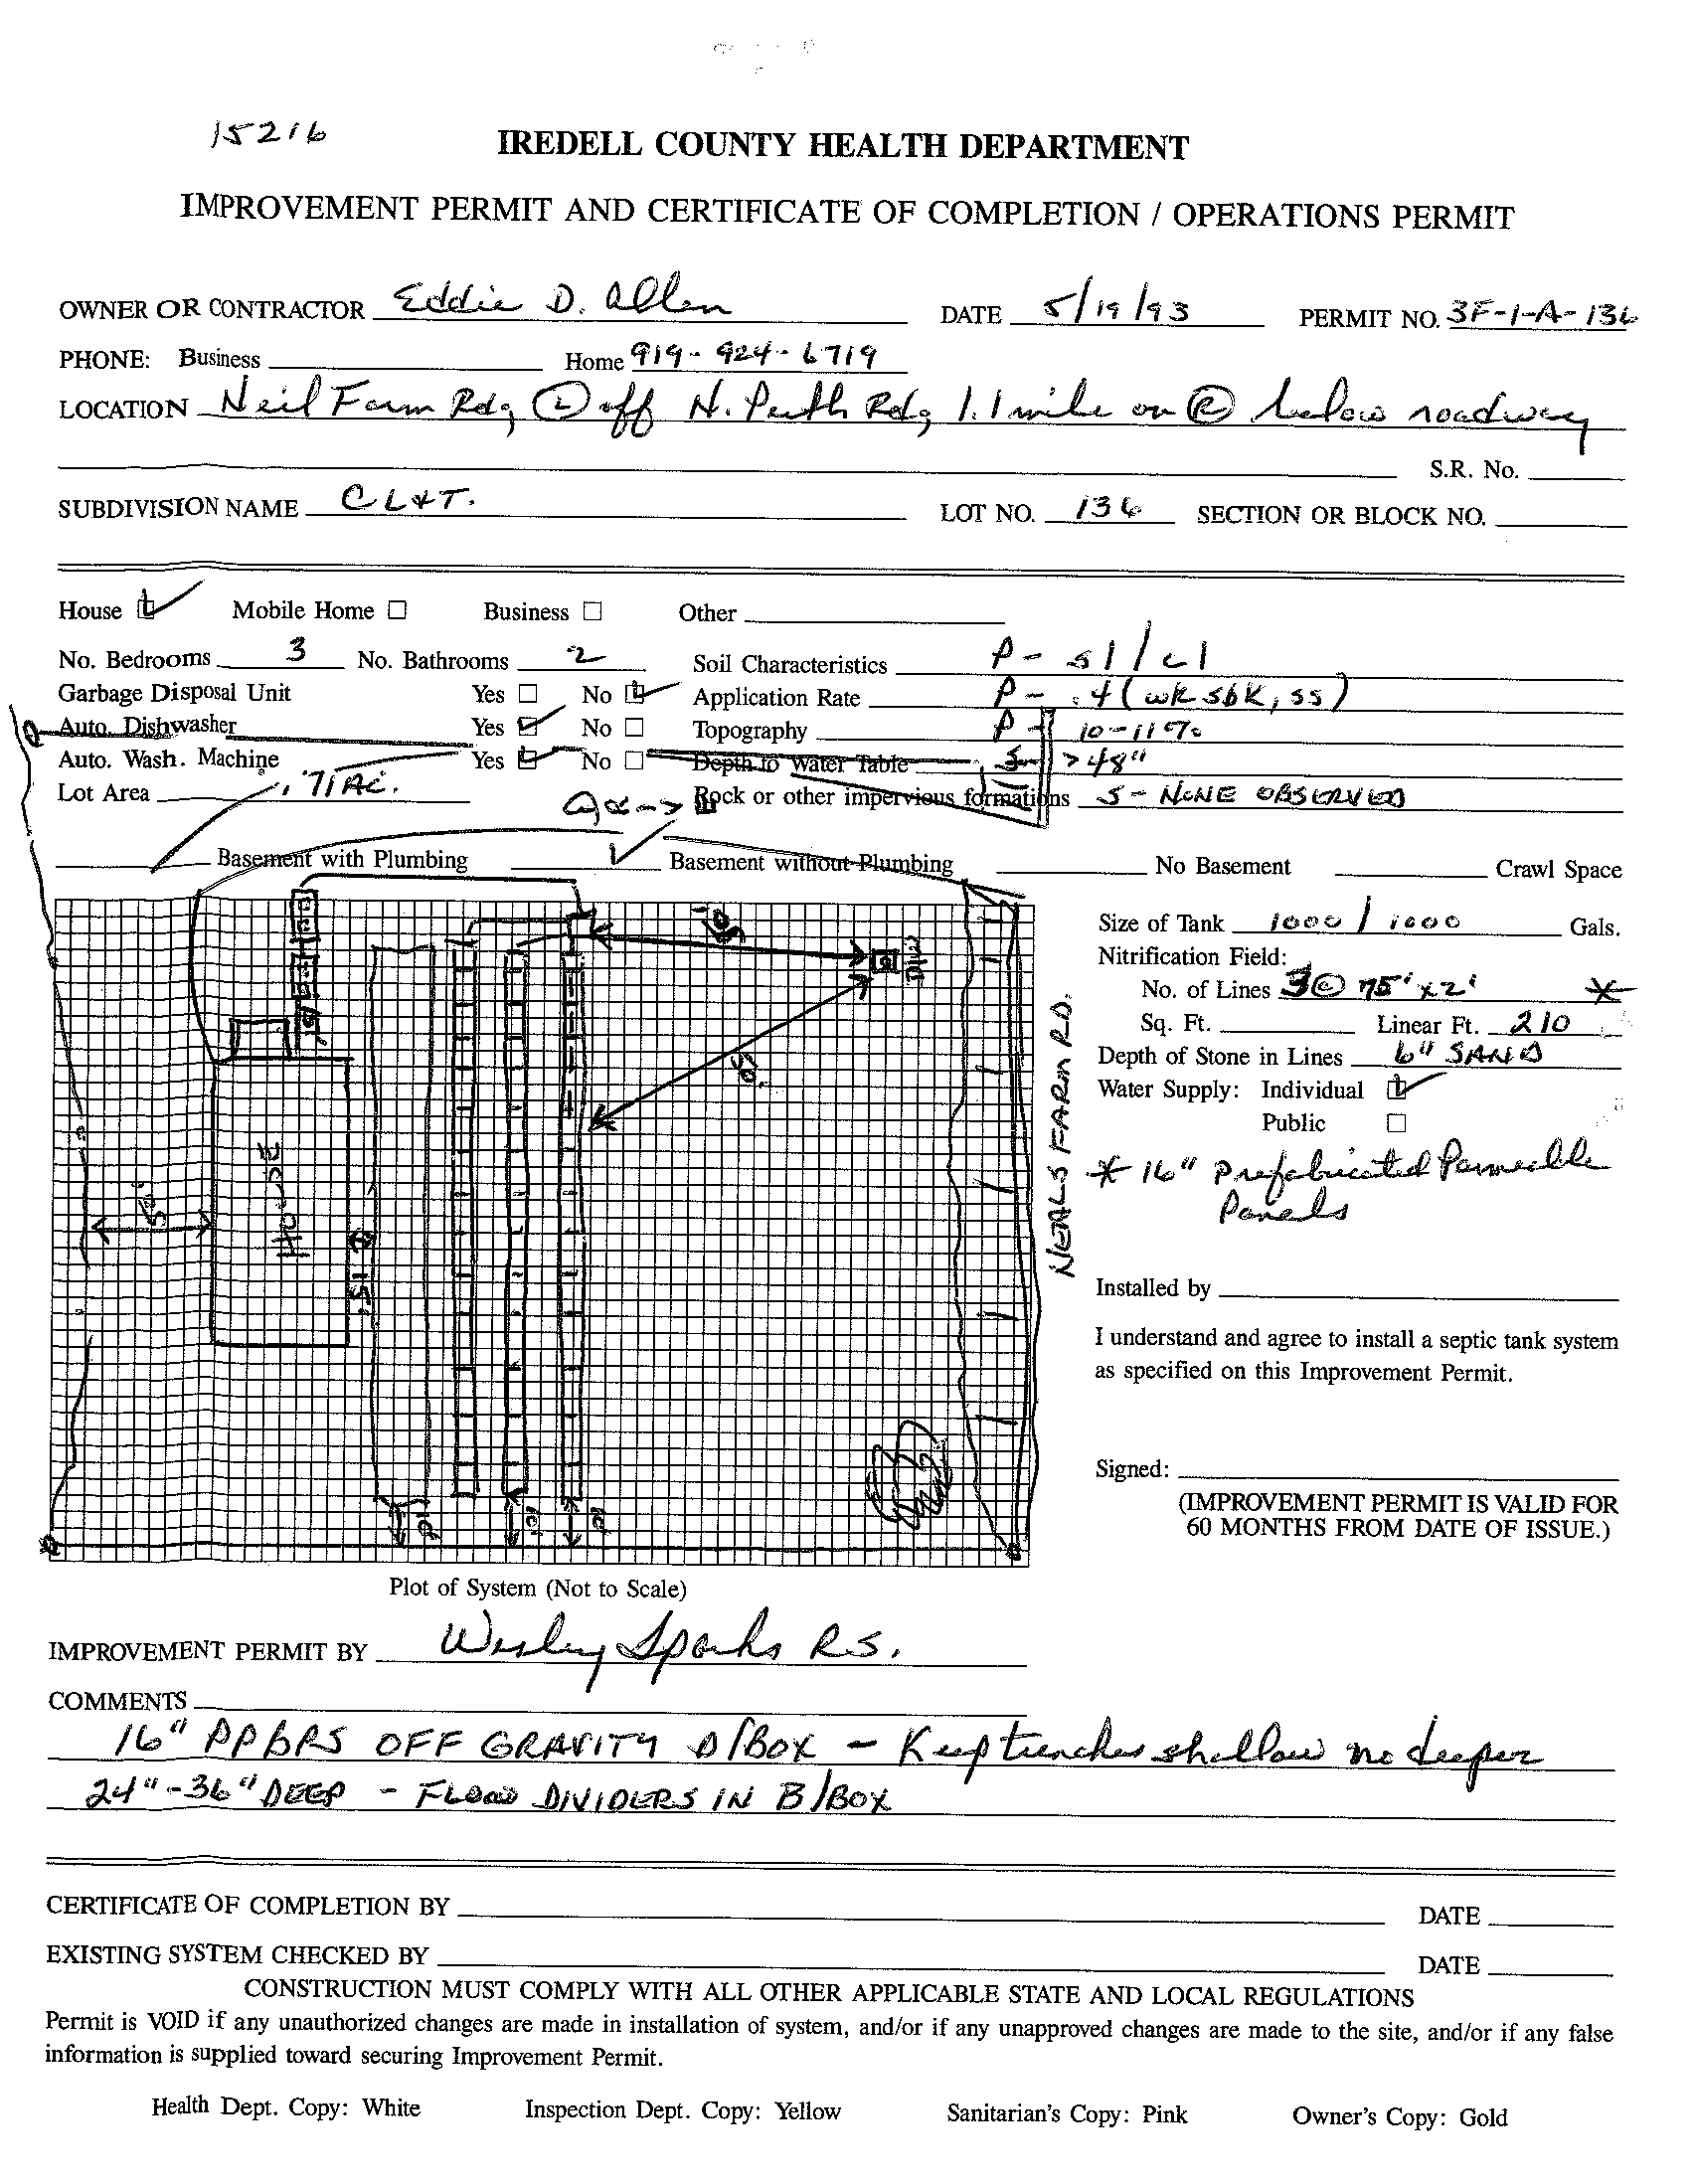 15216
IREDELL COUNTY HEALTH DEPARTMENT
IMPROVEMENT PERMIT AND CERTIFICATE OF COMPLETION / OPERATIONS PERMIT
OWNER OR CONTRACTOR Eddie D. Allen DATE 5/19/93 PERMIT NO. 3F-1-A-136
PHONE: Business Home 919-924-6719
LOCATION Neil Farm Rd, L off N. Perth Rd, 1.1 mile on R below roadway
S.R. No.
SUBDIVISION NAME CL&T. LOT NO. 136 SECTION OR BLOCK NO.
House Mobile Home Business Other
No. Bedrooms 3 No. Bathrooms 2 Soil Characteristics P - sl/cl
Garbage Disposal Unit Yes No Application Rate P - .4 (wk sbk, ss)
Auto. Dishwasher Yes No Topography P - 10-11%
Auto. Wash. Machine Yes No Depth to Water Table S - >48"
Lot Area .71 AC. Rock or other impervious formations S - NONE OBSERVED
Basement with Plumbing Basement without Plumbing No Basement Crawl Space
Size of Tank 1000/1000 Gals.
Nitrification Field:
No. of Lines 3 @ 75' x 2' *
Sq. Ft. Linear Ft. 210
Depth of Stone in Lines 6" SAND
Water Supply: Individual
Public
* 16" Prefabricated Permeable
Panels
50'
50'
HOUSE
15'
10'
10'
10'
NEALS FARM RD.
Installed by
I understand and agree to install a septic tank system
as specified on this Improvement Permit.
Signed:
(IMPROVEMENT PERMIT IS VALID FOR
60 MONTHS FROM DATE OF ISSUE.)
Plot of System (Not to Scale)
IMPROVEMENT PERMIT BY Wesley Sparks R.S.
COMMENTS
16" PPBPS OFF GRAVITY D/BOX - Keep trenches shallow no deeper
24"-36" DEEP - FLOW DIVIDERS IN B/BOX
CERTIFICATE OF COMPLETION BY DATE
EXISTING SYSTEM CHECKED BY DATE
CONSTRUCTION MUST COMPLY WITH ALL OTHER APPLICABLE STATE AND LOCAL REGULATIONS
Permit is VOID if any unauthorized changes are made in installation of system, and/or if any unapproved changes are made to the site, and/or if any false
information is supplied toward securing Improvement Permit.
Health Dept. Copy: White Inspection Dept. Copy: Yellow Sanitarian's Copy: Pink Owner's Copy: Gold